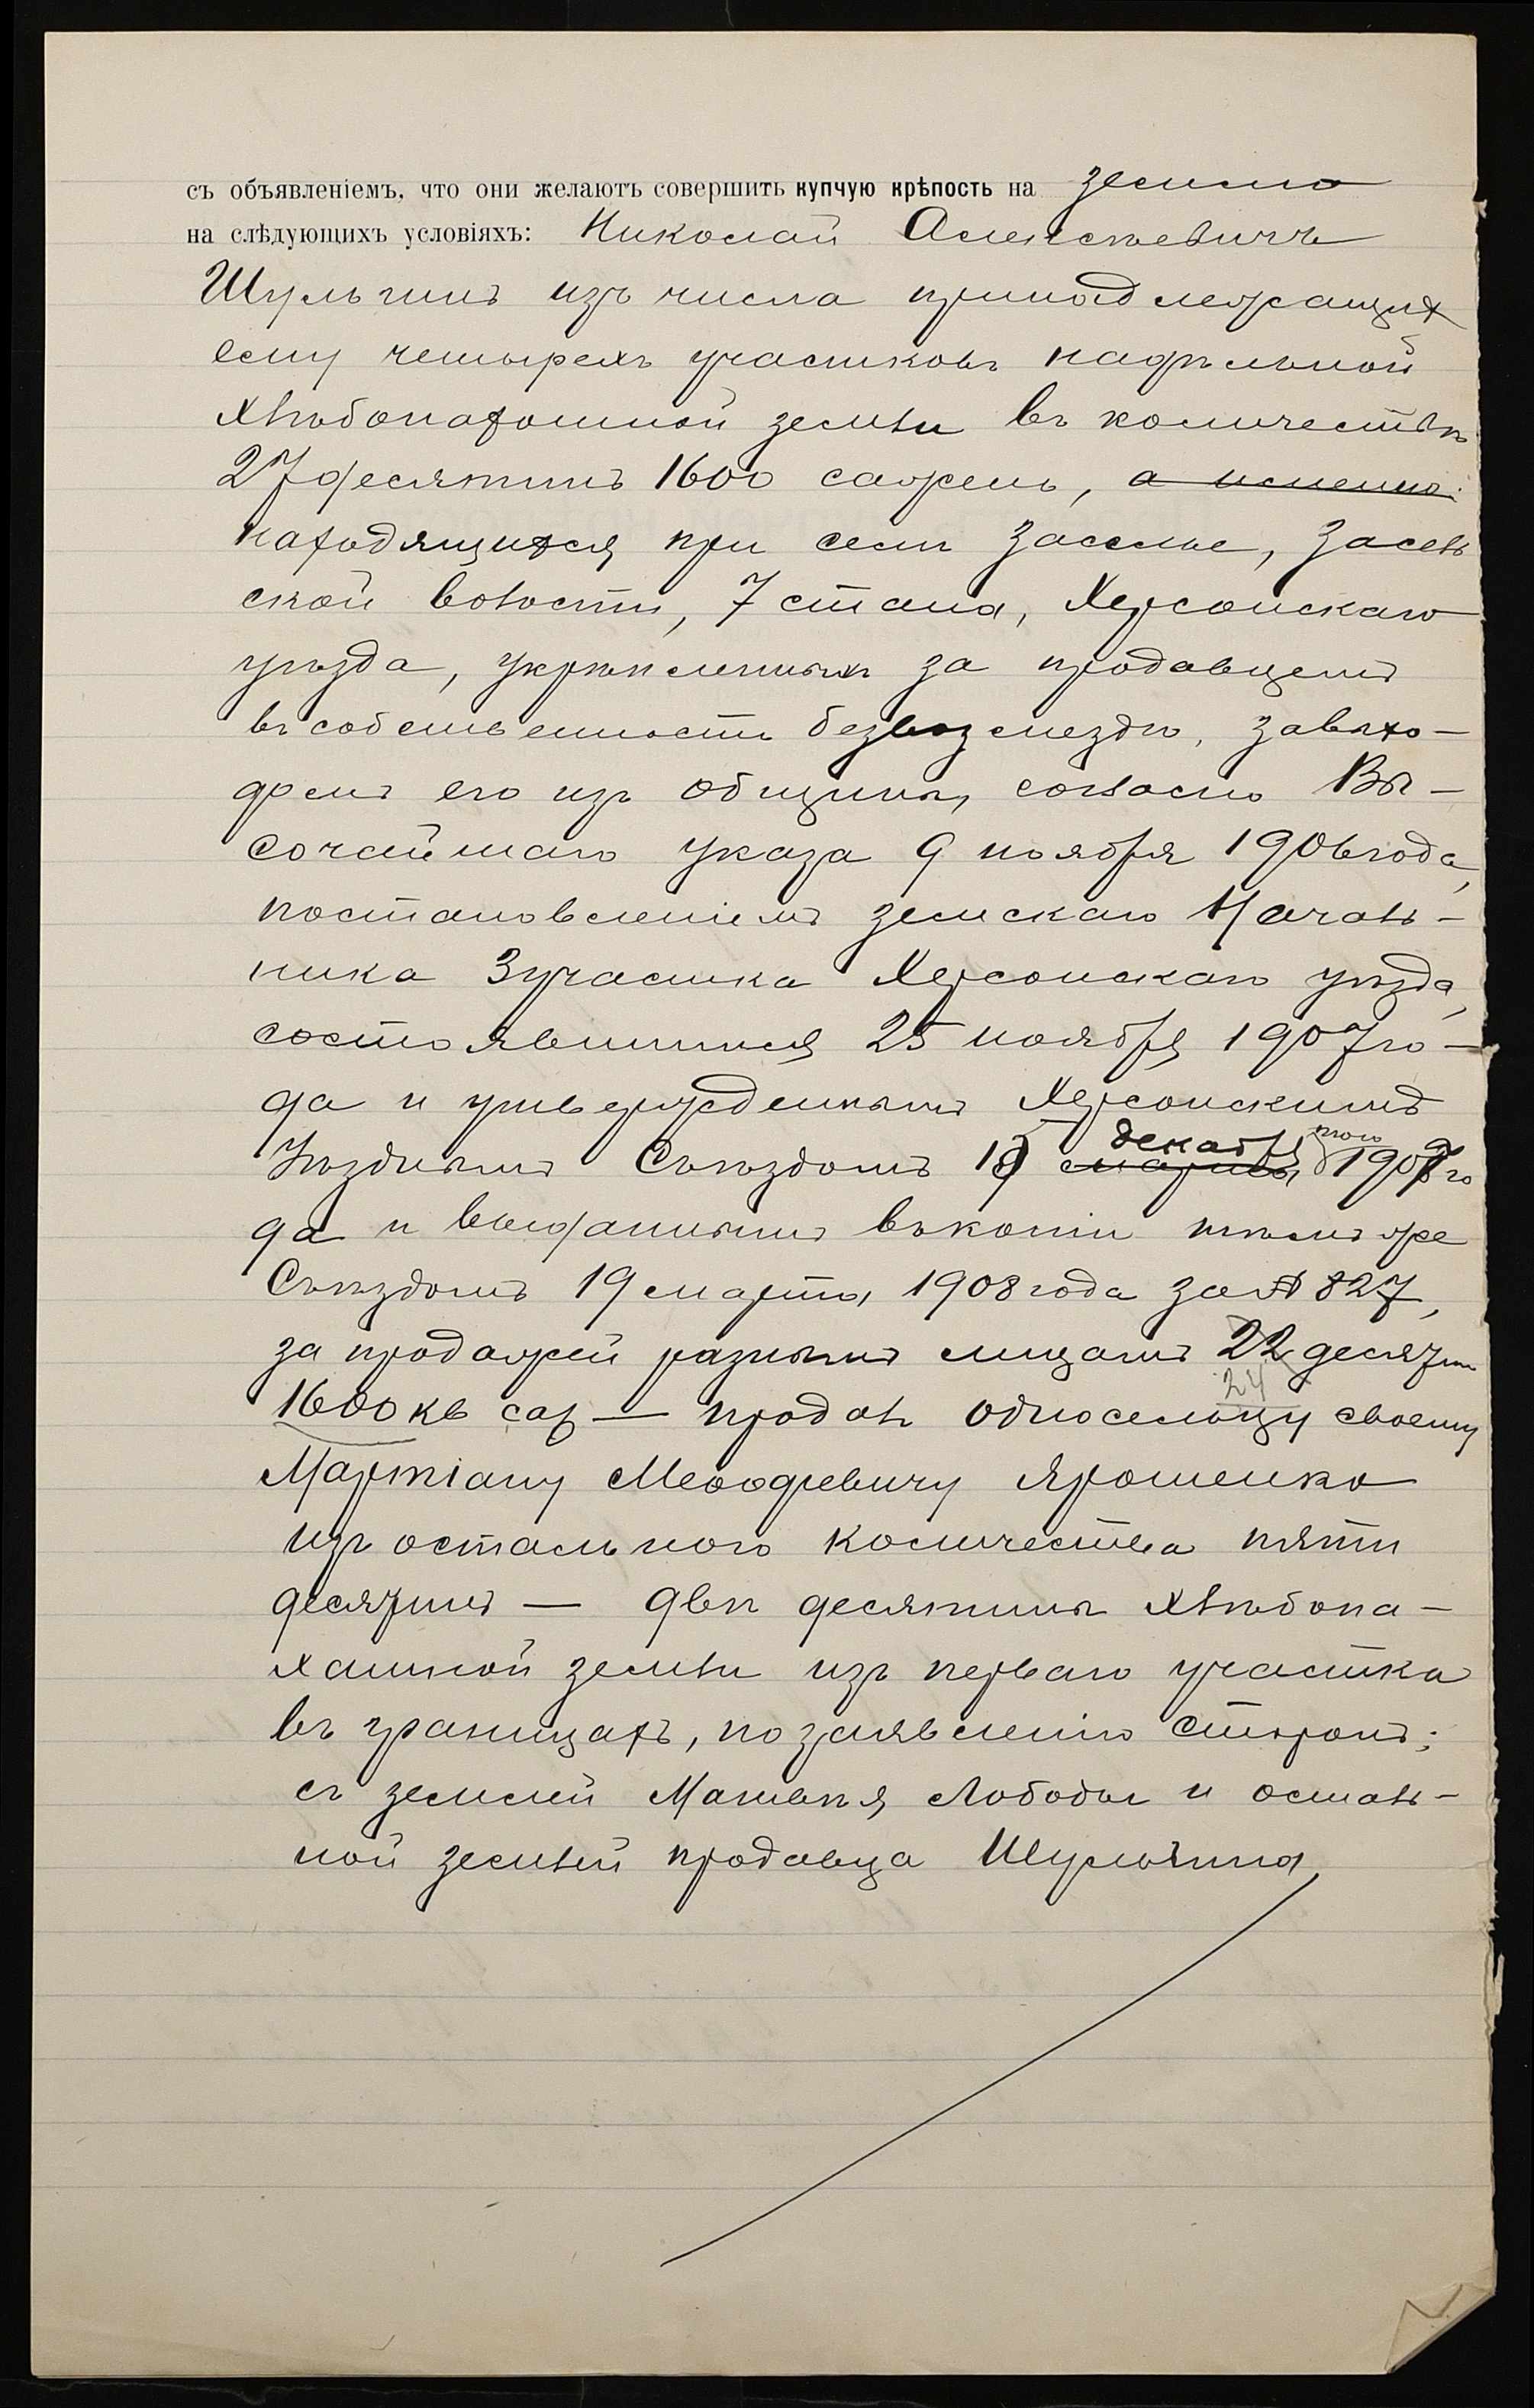 съ объявленіемъ, что они желаютъ совершить купчую крѣпость на землю
на слѣдующихъ условіяхъ: Николай Алексѣевичъ
Шульгинъ изъ числа принадлежащихъ
ему четырехъ участковъ надѣльной
хлѣбопахотной земли въ количествѣ
27 десятинъ 1600 сажень, а именно:
находящихся при селѣ Заселье, Засель
ской волости, 7 стана, Херсонскаго
уѣзда, укрѣпленныхъ за продавцемъ
въ собственность безвозмездно, за выхо-
домъ его изъ общины, согласно Вы-
сочайшаго указа 9 ноября 1906 года,
постановленіемъ земскаго Началь-
ника 3 участка Херсонскаго уѣзда,
состоявшимся 25 ноября 1907 го-
да и утвержденнымъ Херсонскимъ
декабря того
Уѣзднымъ Съѣздомъ 19 марта 1907 го
да и выданнымъ въ копіи тѣмъ же
Съѣздомъ 19 марта 1908 года за № 827,
за продажей разнымъ лицамъ 22 десятин
24
1600 кв саж — продалъ односельцу своему
Мартіану Меѳодіевичу Ярошенко
изъ остального количества пяти
десятинъ — двѣ десятины хлѣбопа-
хатной земли изъ перваго участка
въ границахъ, по заявленію сторонъ:
съ землей Матвѣя Лободы и осталь-
ной землей продавца Шульгина,